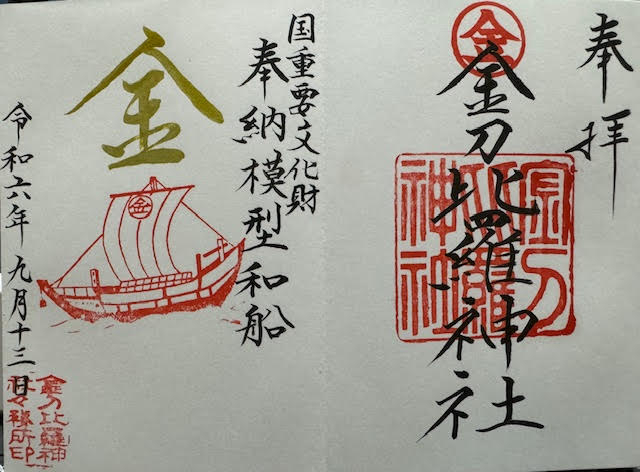 奉拝
金
金刀比羅神社
金刀比羅神社
国重要文化財
奉納模型和船
金
金
令和六年九月十三日
金刀比羅神
社々務所印